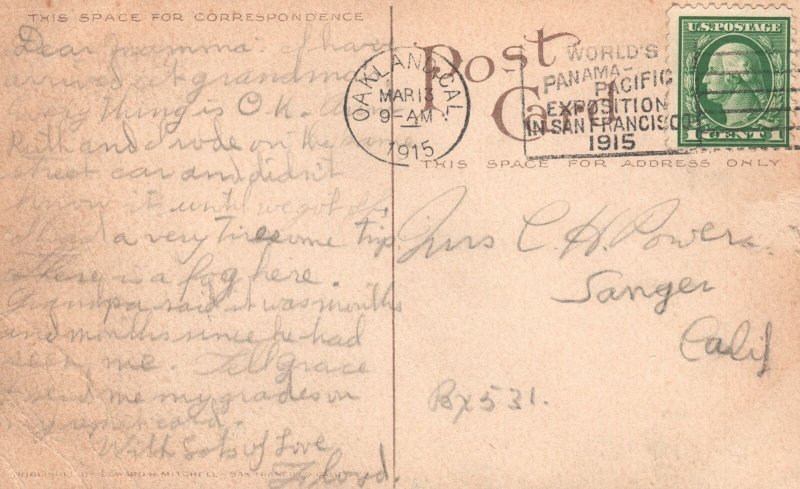 THIS SPACE FOR CORRESPONDENCE
Dear Mamma: I have
arrived at grandma
every thing is O.K. 
Ruth and I rode on the same
street car and didn't
know it until we got off.
I had a very tiresome trip
There is a fog here.
Grampa said it was months
and months since he had
seen me. Tell grace
to send me my grades on
my report card.
With Lots of Love
Floyd.
PUBLISHED BY EDWARD H. MITCHELL - SAN FRANCISCO
Post
Card
OAKLAND, CAL.
MAR 13
9-AM
1915
WORLD'S
PANAMA-
PACIFIC
EXPOSITION
IN SAN FRANCISCO
1915
U.S. POSTAGE
1 CENT 1
THIS SPACE FOR ADDRESS ONLY
Mrs C. H. Powers.
Sanger
Calif
Bx 531.